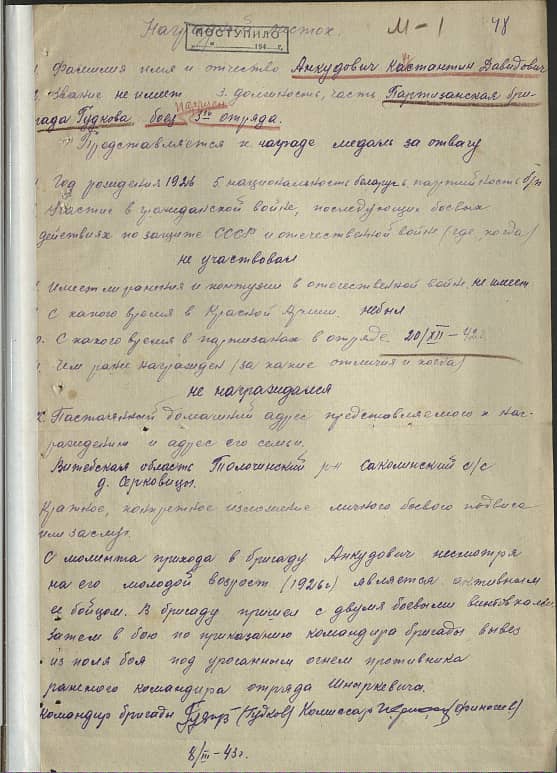 Наградной листок.
М-1 48
ПОСТУПИЛО
194 г.
1. Фамилия имя и отчество Анкудович Кастантин Давидович
2. Звание не имеет 3. должность, часть Партизанская бри-
гада Гудкова боец 3го отряда.
Представляется к награде медаль за отвагу
Год рождения 1926 5. национальность беларусь, партийность б/п
участие в гражданской войне, последующих боевых
действиях по защите СССР и отечественной войн (где, когда)
не участвовал
Имеет ли ранения и контузии в отечественной войн. не имеет
С какого время в Красной Армии. небыл
С какого время в партизанах в отряде 20/XII-42г.
Чем ране награжден (за какие отличия и когда)
не награждался
Пастаянный домашний адрес представляемого к наг-
раждению и адрес его семьи.
Витебская область Толочинский р-н Саколинский с/с
д. Серковицы.
Кратное, конкретное изложение личного боевого подвига
или заслуг.
С момента прихода в бригаду Анкудович несмотря
на его молодой возрост (1926г) является активным
ее бойцом. В бригаду пришел с двумя боевыми винтовками
затем в бою по приказанию командира бригады вывез
из поля боя под ураганным огнем противника
раненого командира отряда Шныркевича.
Командир бригады (Гудков) Комиссар
8/III-43г.